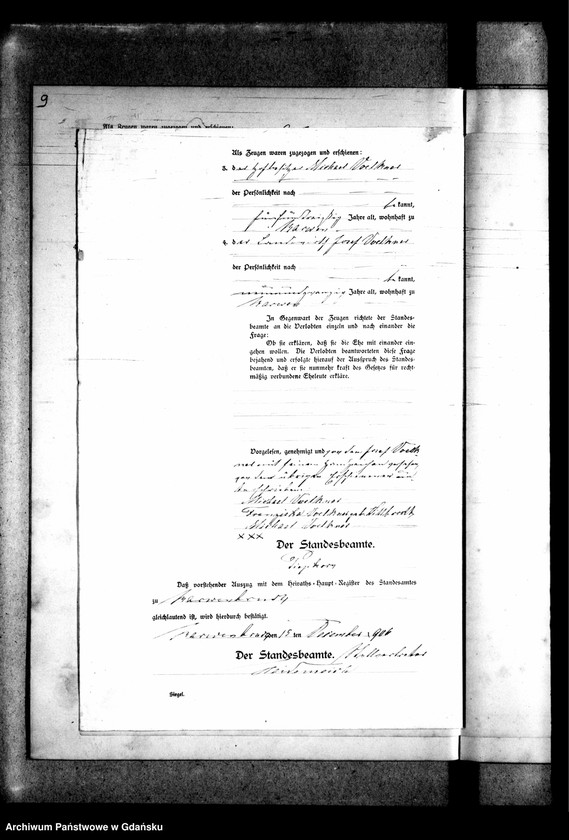 9
Als Zeugen waren zugezogen und erschienen:
Als Zeugen waren zugezogen und erschienen:
3. der Hofbesitzer Michael Voelkner
der Persönlichkeit nach
be kannt,
fünfunddreißig Jahre alt, wohnhaft zu
Karwen
4. der Landwirt Josef Voelkner
der Persönlichkeit nach
be kannt,
neunundzwanzig Jahre alt, wohnhaft zu
Karwen
In Gegenwart der Zeugen richtete der Standes-
beamte an die Verlobten einzeln und nach einander die
Frage:
Ob sie erklären, daß sie die Ehe mit einander ein-
gehen wollen. Die Verlobten beantworteten diese Frage
bejahend und erfolgte hierauf der Ausspruch des Standes-
beamten, daß er sie nunmehr kraft des Gesetzes für recht-
mäßig verbundene Eheleute erkläre.
Vorgelesen, genehmigt und von dem Josef Voelk
ner mit seinem Handzeichen versehen
von den übrigen Erschienenen un
terschrieben
Michael Voelkner
Franziska Voelkner geb.
Michael Voelkner
XXX
Der Standesbeamte.
Daß vorstehender Auszug mit dem Heiraths-Haupt-Register des Standesamtes
zu
gleichlautend ist, wird hierdurch bestätigt.
den 15 ten Dezember 1906
Der Standesbeamte.
Siegel.
Archiwum Państwowe w Gdańsku